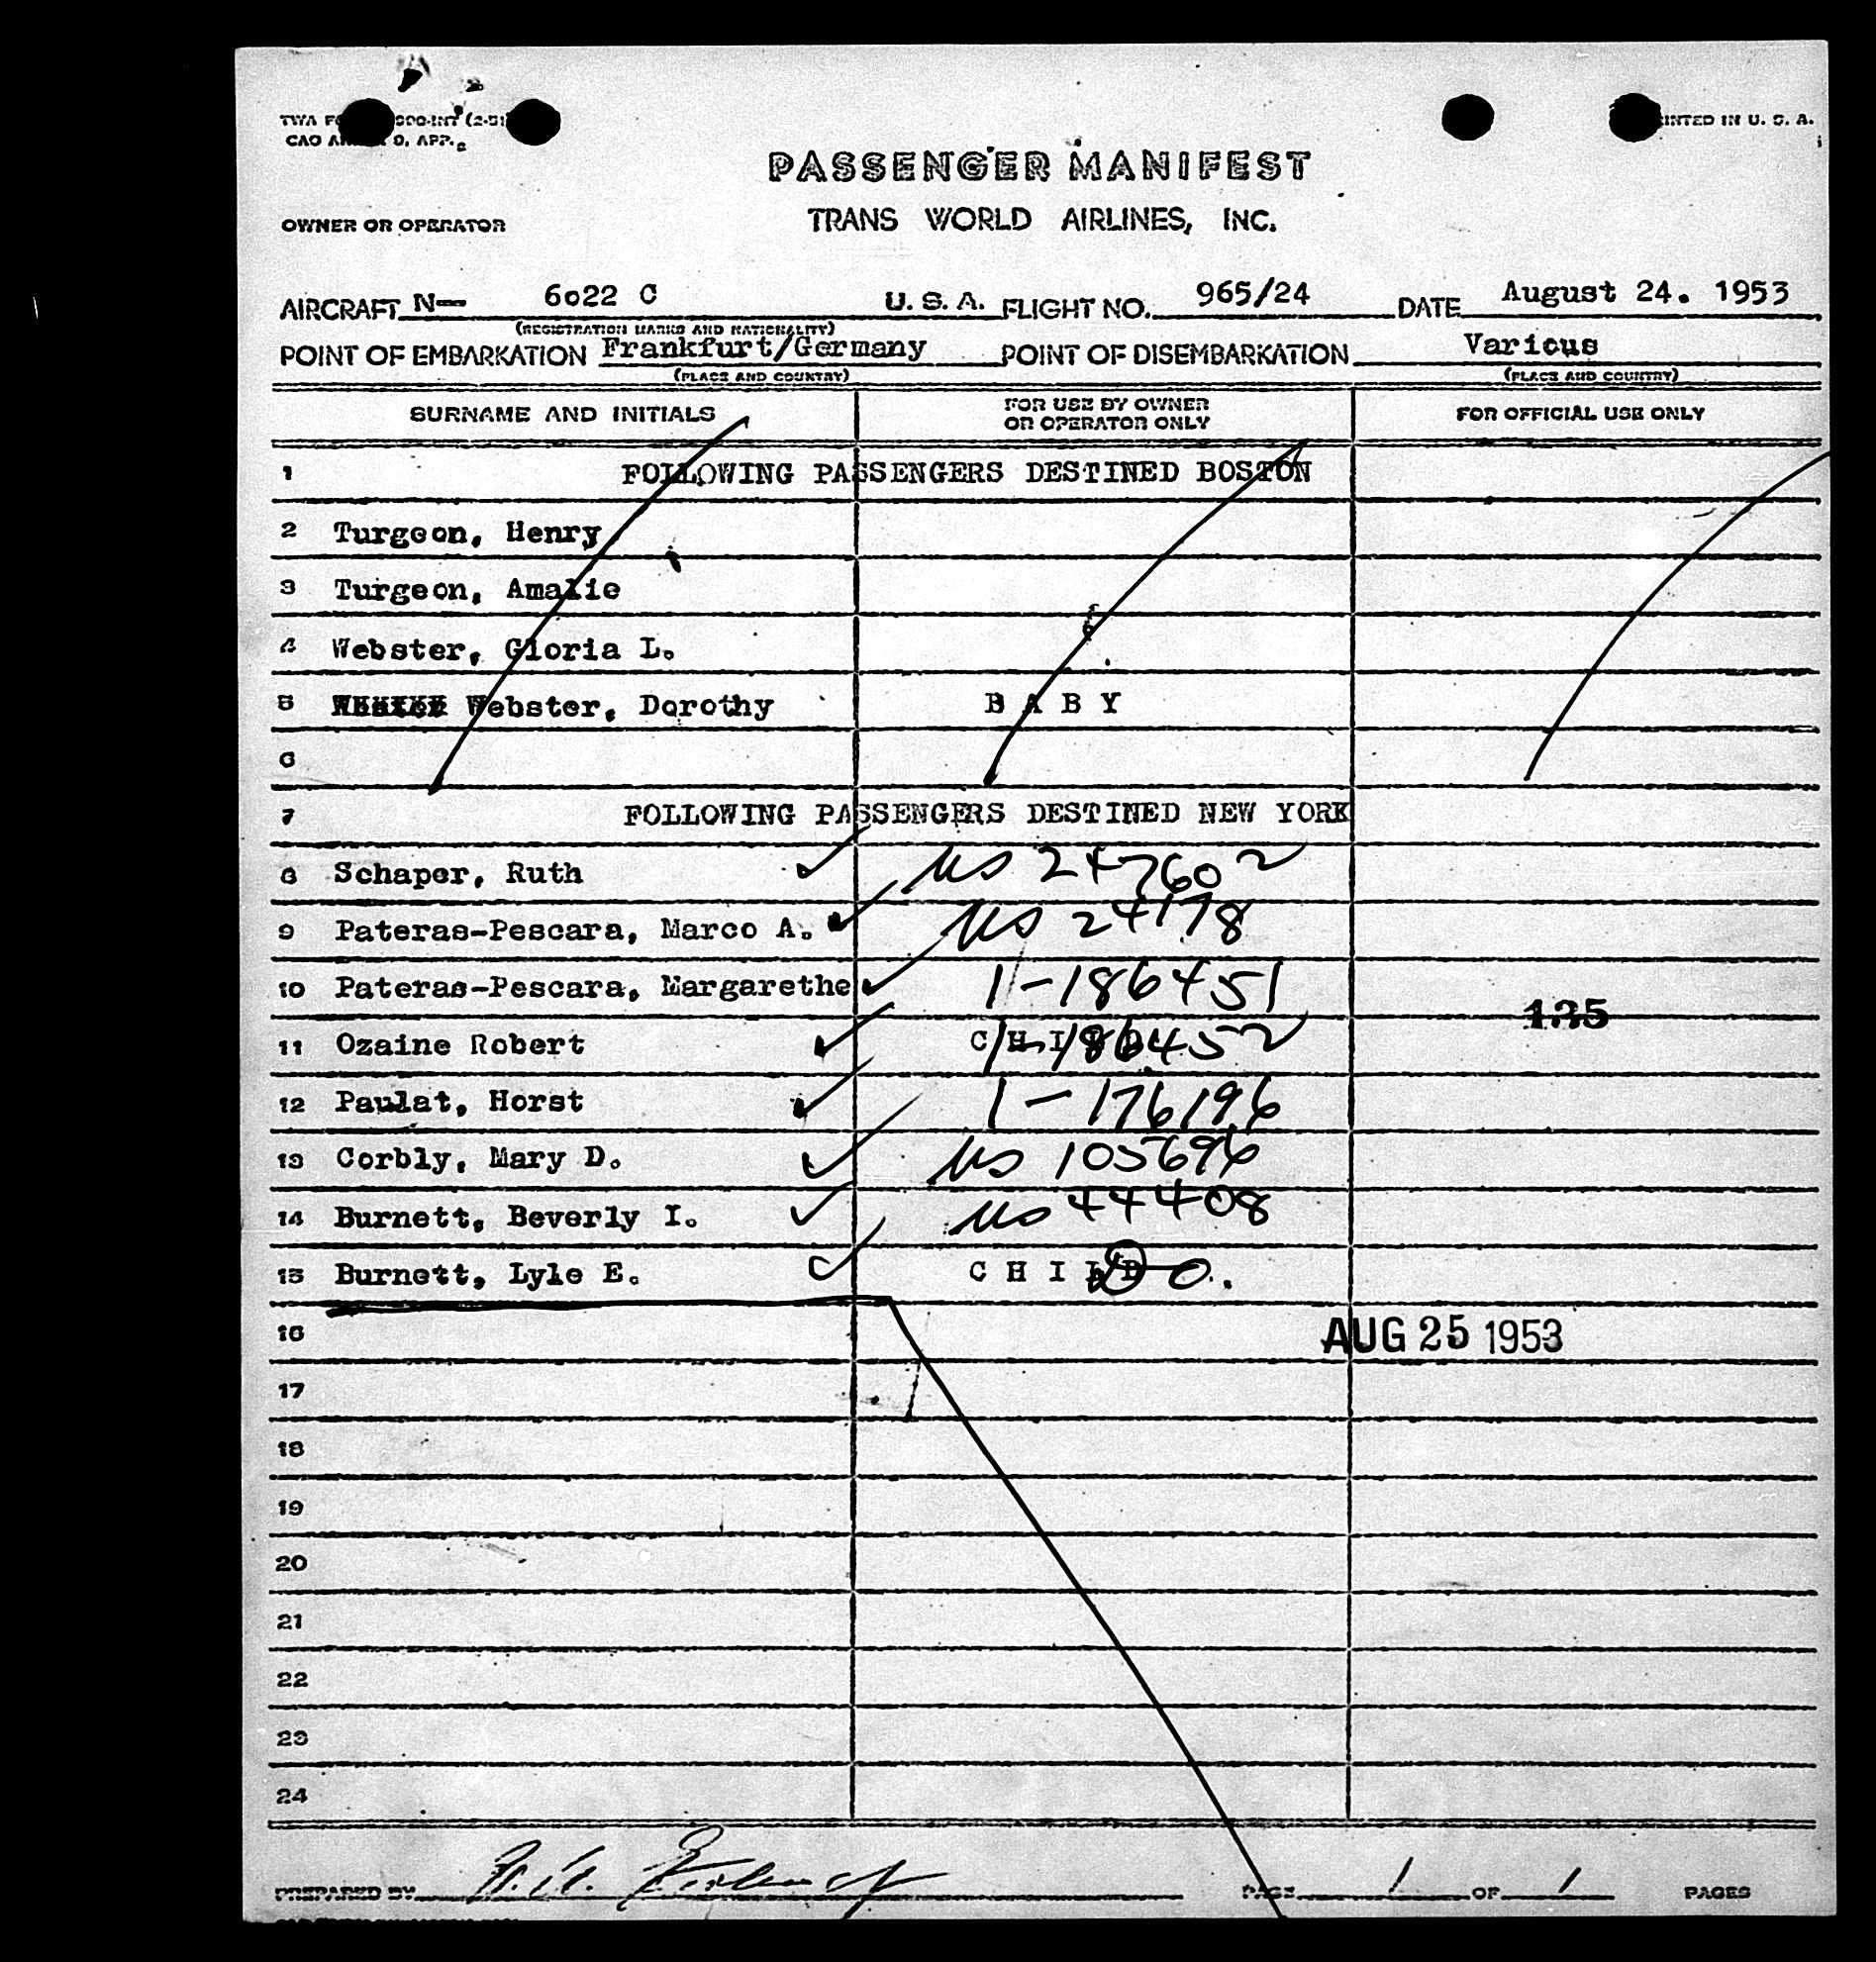 (2-51
CAO APP.
PRINTED IN U. S. A.
PASSENGER MANIFEST
OWNER OR OPERATOR TRANS WORLD AIRLINES, INC.
AIRCRAFT N— 6022 C U. S. A. FLIGHT NO. 965/24 DATE August 24. 1953
(REGISTRATION MARKS AND NATIONALITY)
POINT OF EMBARKATION Frankfurt/Germany POINT OF DISEMBARKATION Various
(PLACE AND COUNTRY) (PLACE AND COUNTRY)
SURNAME AND INITIALS FOR USE BY OWNER OR OPERATOR ONLY FOR OFFICIAL USE ONLY
1 FOLLOWING PASSENGERS DESTINED BOSTON
2 Turgeon, Henry
3 Turgeon, Amalie
4 Webster, Gloria L.
5 Webster, Dorothy B A B Y
6
7 FOLLOWING PASSENGERS DESTINED NEW YORK
8 Schaper, Ruth US 247602
9 Pateras-Pescara, Marco A. US 24178
10 Pateras-Pescara, Margarethe 1-186451
11 Ozaine Robert C H I L D 1-186452
12 Paulat, Horst 1-176196
13 Corbly, Mary D. US 105696
14 Burnett, Beverly I. US 44408
15 Burnett, Lyle E. C H I L D
16 AUG 25 1953
17
18
19
20
21
22
23
24
PREPARED BY PAGE 1 OF 1 PAGES